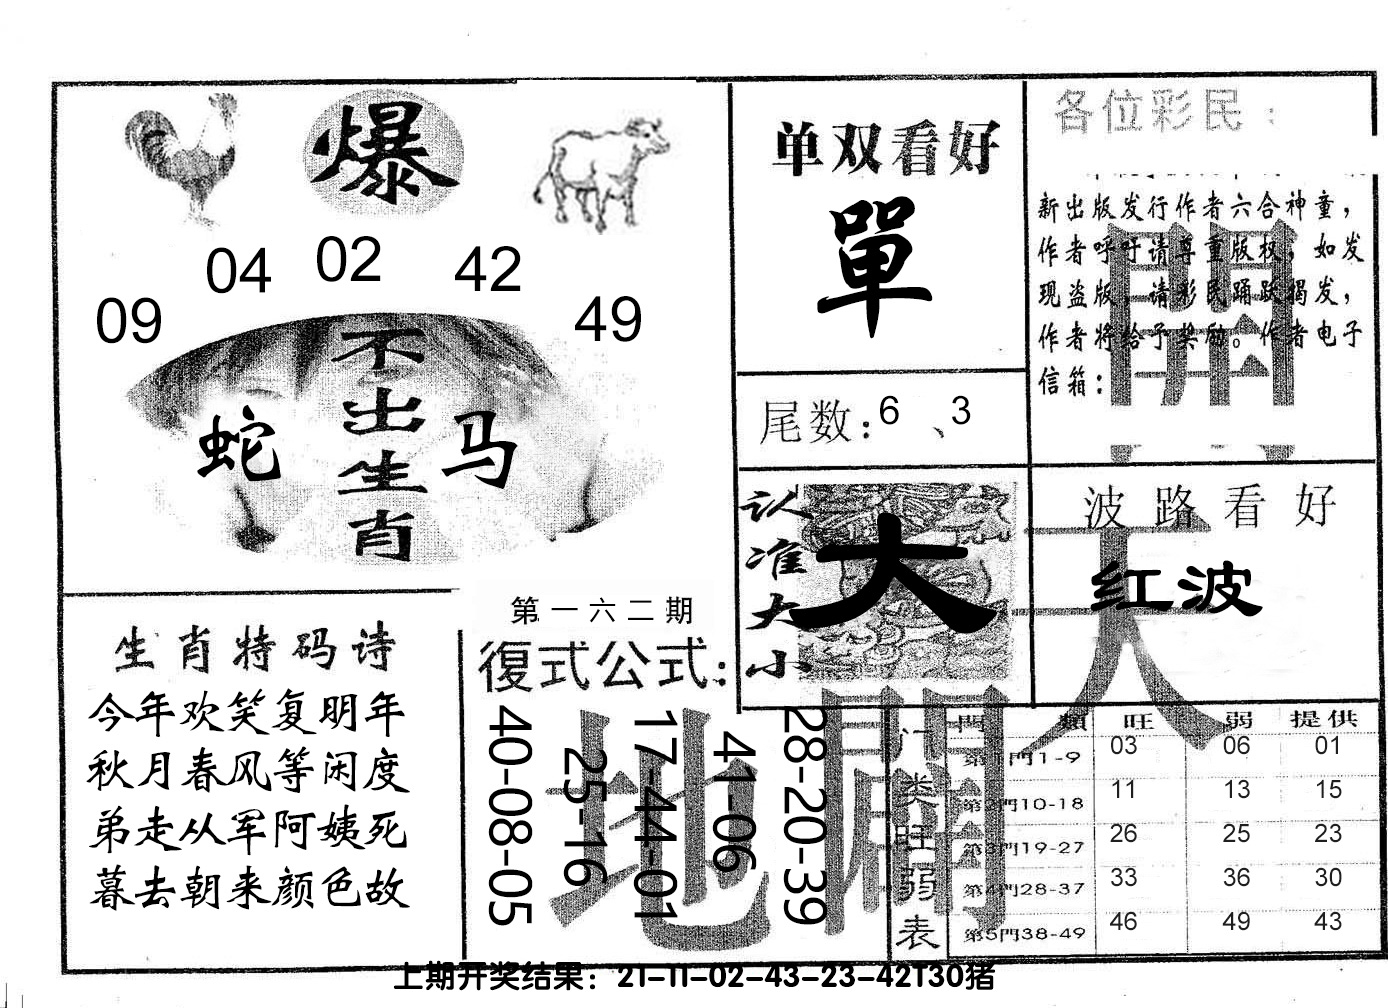 爆
04 02 42
09 49
不出生肖
蛇 马
单双看好
單
尾数:6、3
各位彩民:
新出版发行作者六合神童，
作者呼吁请尊重版权，如发
现盗版，请彩民踊跃揭发，
作者将给予奖励。作者电子
信箱:
開
认准大小
大
波路看好
红波
天
生肖特码诗
今年欢笑复明年
秋月春风等闲度
弟走从军阿姨死
暮去朝来颜色故
第一六二期
復式公式:
40-08-05
25-16
17-44-01
41-06
28-20-39
地
開
门类旺弱表
門類 旺 弱 提供
第1門1-9 03 06 01
第2門10-18 11 13 15
第3門19-27 26 25 23
第4門28-37 33 36 30
第5門38-49 46 49 43
上期开奖结果：21-11-02-43-23-42T30猪